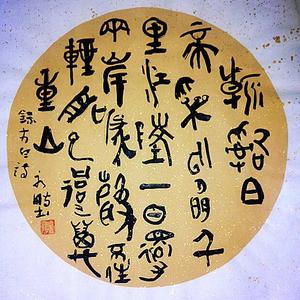 朝辭白
帝彩雲間千
里江陵一日還
兩岸猿聲啼不住
輕舟已過萬
重山
錄李白詩